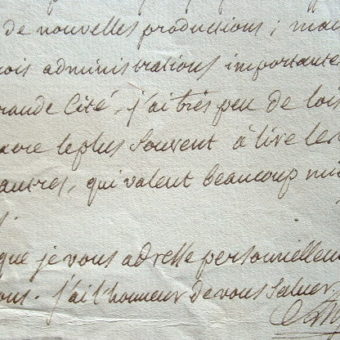 de nouvelles productions; mai
ois administrations importante
rande Cité, j'ai très peu de lois
le plus Souvent à lire les
autres, qui valent beaucoup mi
que je vous adresse personnellem
ous. j'ai l'honneur de vous Saluer,